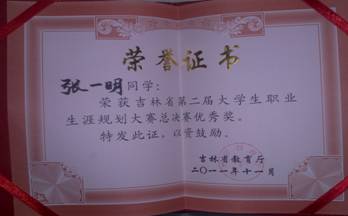 荣誉证书
张一明同学:
荣获吉林省第二届大学生职业
生涯规划大赛总决赛优秀奖。
特发此证,以资鼓励。
吉林省教育厅
二〇一一年十一月